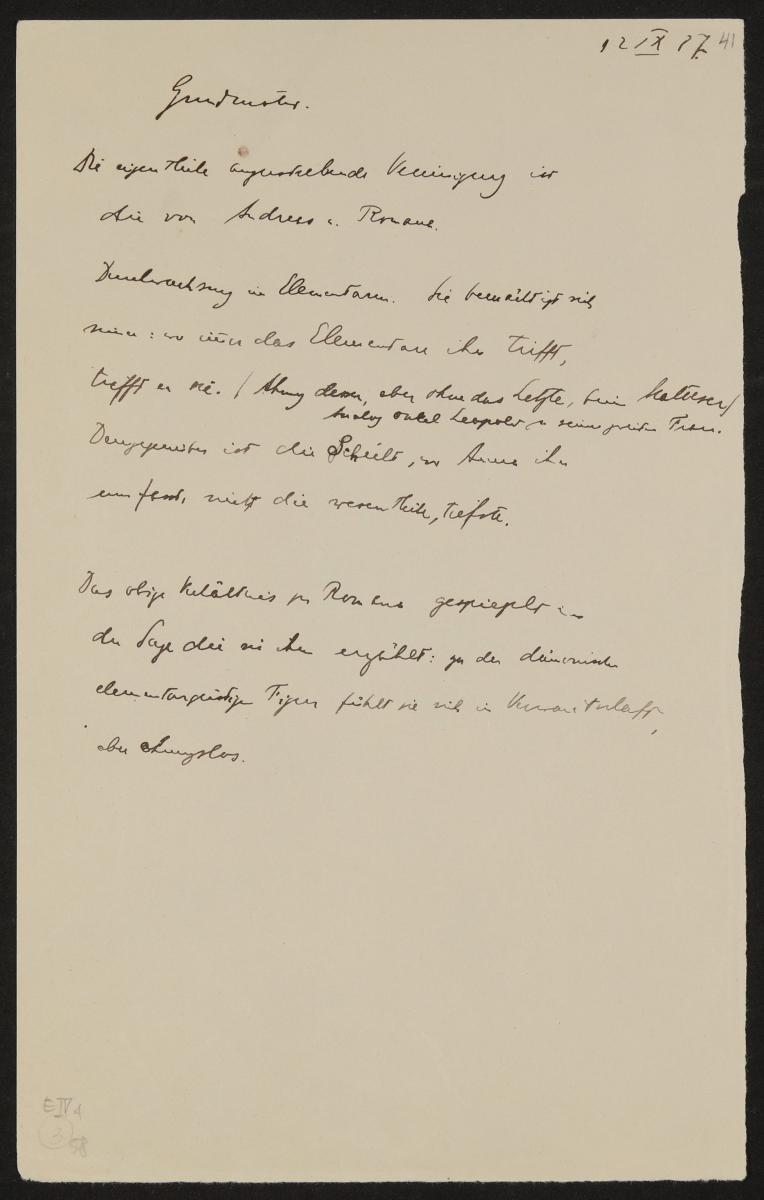 12 IX 27. 41
Grundmotiv.
Die eigentliche anzustrebende Vereinigung ist
die von Andreas u. Romana.
Durchwachsung im Elementaren. Sie bemächtigt sich
seiner: wo immer das Elementare ihn trifft,
trifft er sie. / Ahnung dessen, aber ohne das Letzte, beim Malteser /
Analog Onkel Leopold zu seiner zweiten Frau.
Demgegenüber ist die Schicht, wo Anna ihn
umfasst, nicht die wesentliche, tiefste.
Das obige Verhältnis zu Romana gespiegelt in
der Sage die sie ihm erzählt: zu der dämonischen
elementargeistigen Figur fühlt sie sich in Verwantschaft,
aber ahnungslos.
E IV 4
3 58